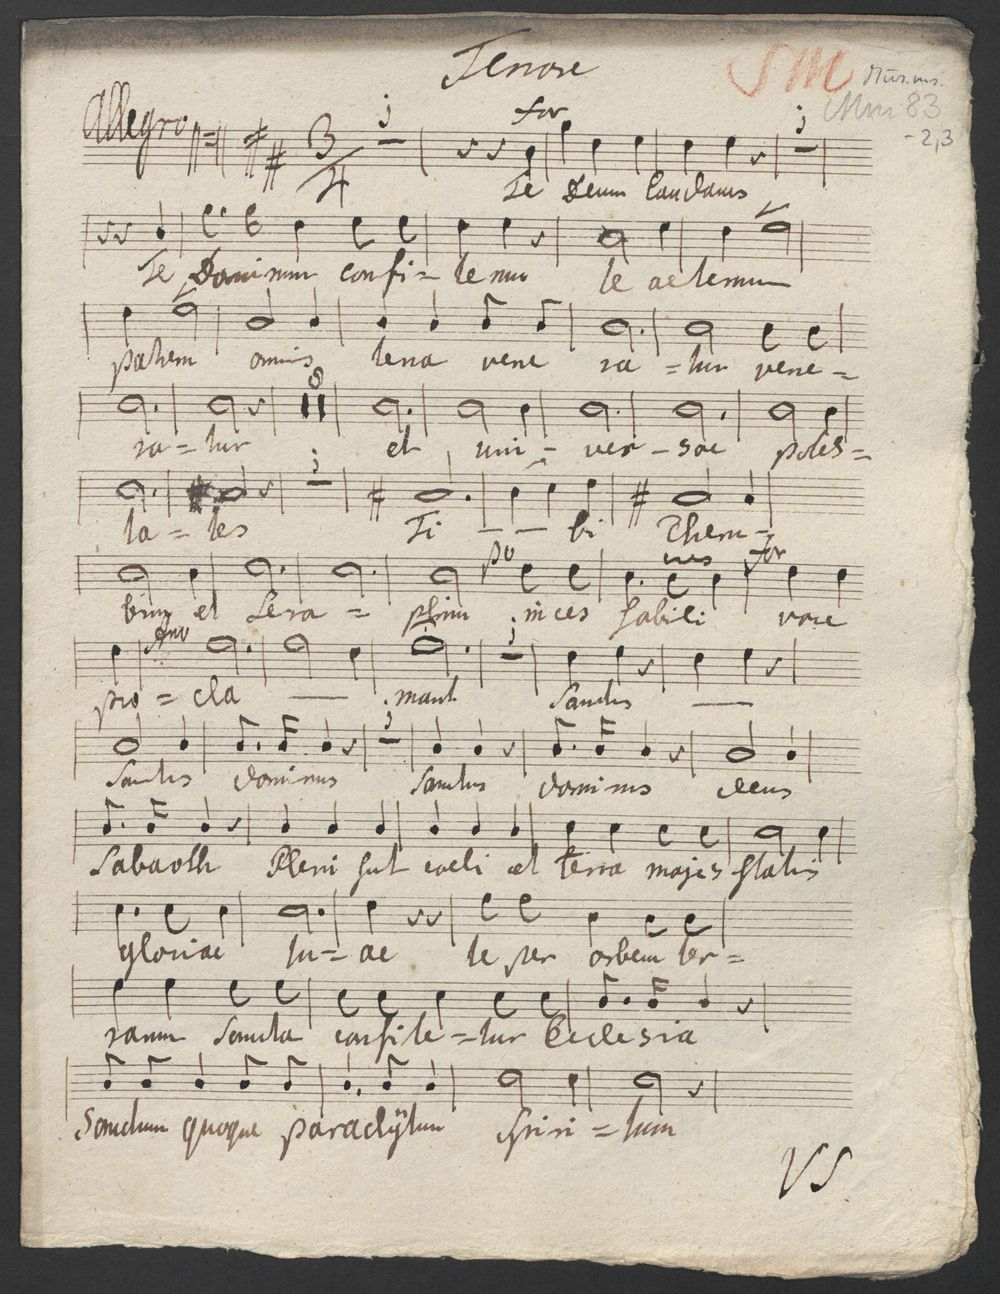 Tenore
SM
Mus.ms.
Mm 83
-2,3
Allegro
3/4
for
Te Deum laudamus
Te Dominum confi = temur te aeternum
patrem omnis terra vene ra = tur vene =
8
ra = tur et uni - ver - sae potes =
ta = tes Ti - - bi Cheru =
po for
bim et Sera = phim inces sabili voce
pro = cla — mant Sanctus —
Sanctus dominus Sanctus dominus deus
Sabaoth Pleni sut coeli et terra majes statis
gloriae tu = ae te per orbem ter =
rarum sancta confite = tur Ecclesia
Sanctum quoque paraclÿtum spiri = tum
VS